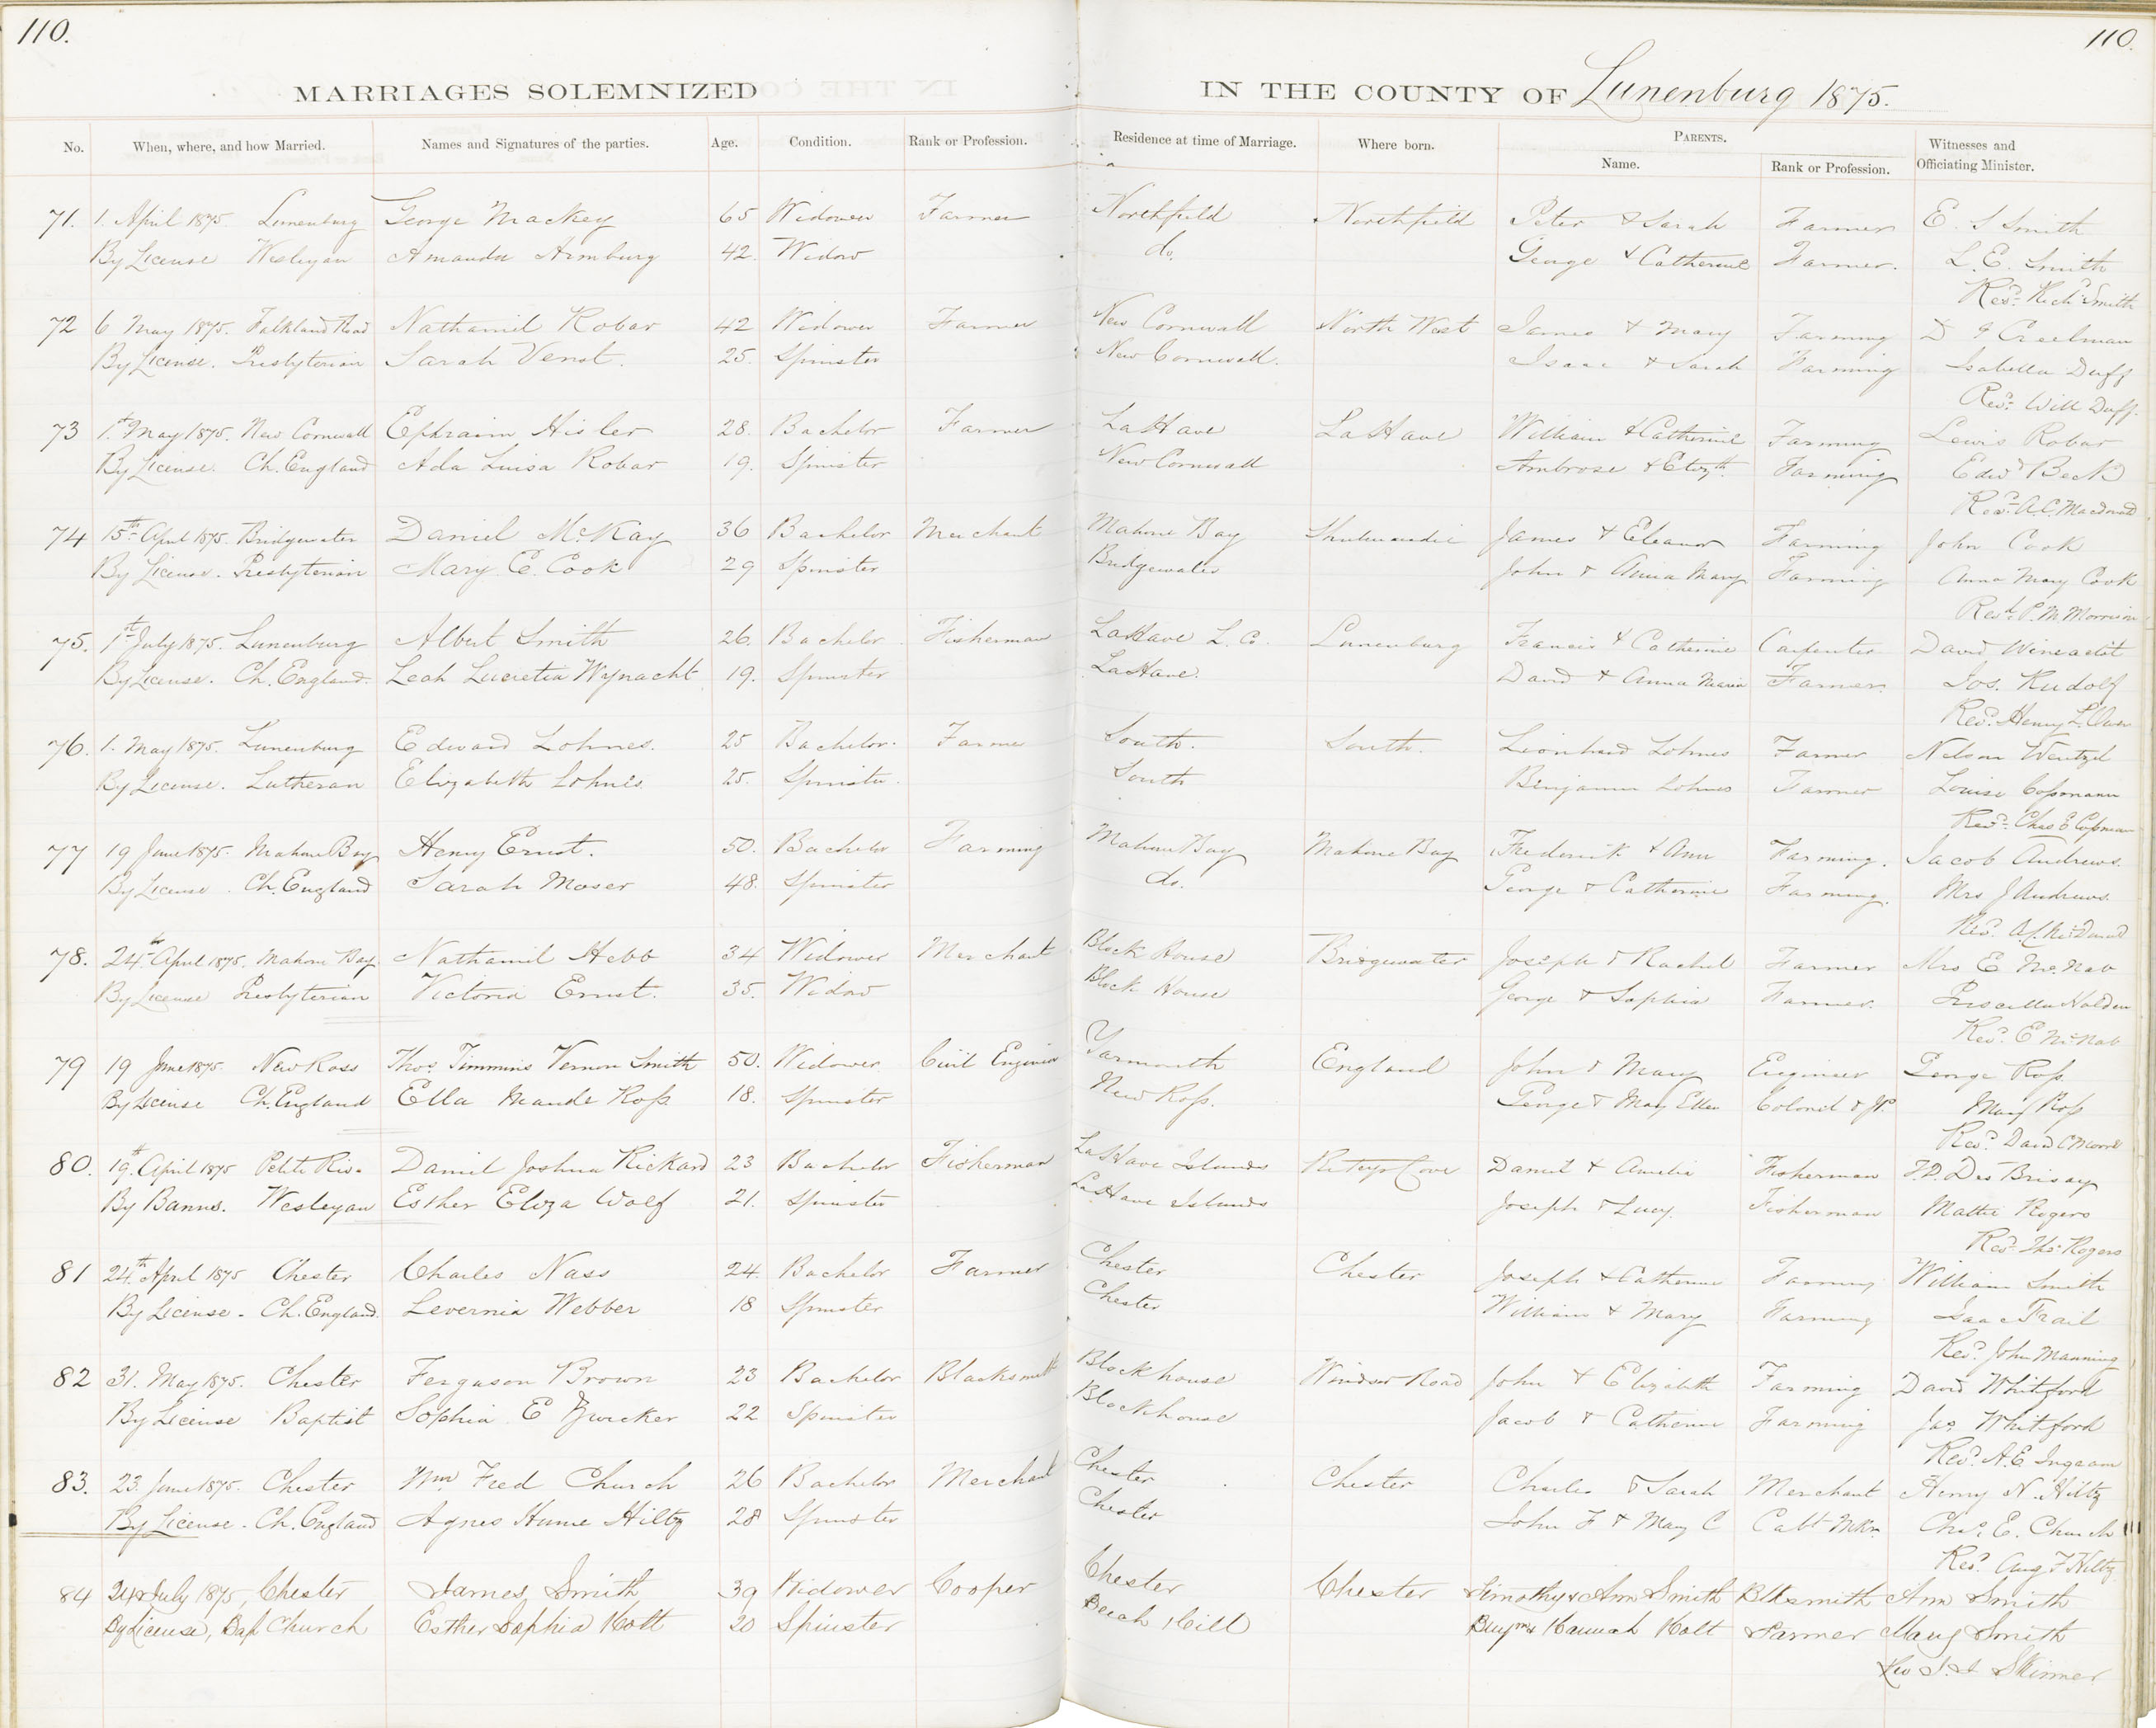 110.
110.
MARRIAGES SOLEMNIZED IN THE COUNTY OF Lunenburg 1875.
No. When, where, and how Married. Names and Signatures of the parties. Age. Condition. Rank or Profession. Residence at time of Marriage. Where born. PARENTS. Witnesses and
Name. Rank or Profession. Officiating Minister.
71. 1. April 1875. Lunenburg George Mackey 65 Widower Farmer Northfield Northfield Peter & Sarah Farmer E. S Smith
By License Wesleyan Amanda Armburg 42. Widow do. George & Catherine Farmer. L. E. Smith
Revd. Richd. Smith
72 6 May 1875. Falkland Road Nathaniel Robar 42 Widower Farmer New Cornwall North West James & Mary Farming D F Creelman
By License. Presbyterian Sarah Venot. 25. Spinster New Cornwall. Isaac & Sarah Farming Isabella Duff
Revd. Will Duff.
73 1st. May 1875. New Cornwall Ephraim Hisler 28. Bachelor Farmer LaHave LaHave William & Catherine Farming Lewis Robar
By License. Ch. England Ada Luisa Robar 19. Spinster New Cornwall Ambrose & Elizth. Farming Edwd Beck
Revd. A.C. Macdonald
74 15th April 1875. Bridgewater Daniel McKay 36 Bachelor Merchant Mahone Bay James & Eleanor Farming John Cook
By License. Presbyterian Mary E. Cook 29 Spinster Bridgewater John & Anna Mary Farming Anna Mary Cook
Revd. P. M. Morrison
75. 1st July 1875. Lunenburg Albert Smith 26. Bachelor Fisherman LaHave L. Co. Lunenburg Francis & Catherine Carpenter David
By License. Ch. England. Leah Lucretia Wynacht 19. Spinster LaHave. David & Anna Maria Farmer. Jos. Rudolf
Revd. Henry L. Owen
76. 1. May 1875. Lunenburg Edward Lohnes. 25 Bachelor. Farmer South. South. Lionhard Lohnes Farmer Nelson Wentzel
By License. Lutheran Elizabeth Lohnes 25. Spinster. South Benjamin Lohnes Farmer Louise Cossmann
Revd. Chas E Cossman
77 19 June 1875. Mahone Bay Henry Ernst. 50. Bachelor Farming Mahone Bay Mahone Bay Frederick & Ann Farming. Jacob Andrews.
By License. Ch. England Sarah Moser 48. Spinster do. George & Catherine Farming. Mrs J Andrews.
Revd.
78. 24th April 1875. Mahone Bay Nathaniel Hebb 34 Widower Merchant Block House Bridgewater Joseph & Rachel Farmer Mrs E McNab
By License Presbyterian Victoria Ernst. 35. Widow Block House George & Sophia Farmer. Priscilla Holden
Revd. E McNab
79 19 June 1875. New Ross Thos Timmins Vernon Smith 50. Widower Civil Engineer Yarmouth England John & Mary Engineer George Ross
By License Ch. England Ella Maude Ross 18. Spinster New Ross. George & Mary Ellen Colonel & JP. Mary Ross
Revd. David C Moore
80. 19th. April 1875 Petite Riv. Daniel Joshua Rickard 23 Bachelor Fisherman LaHave Islands Daniel & Amelia Fisherman Des Brisay
By Banns. Wesleyan Esther Eliza Wolf 21. Spinster LaHave Islands Joseph & Lucy. Fisherman Mattie Rogers
Revd. Thos Rogers
81 24th April 1875 Chester Charles Nass 24. Bachelor Farmer Chester Chester Joseph & Catherine Farming William Smith
By License. Ch. England. Levernia Webber 18 Spinster Chester William & Mary Farming Isaac Frail
Revd. John Manning
82 31. May 1875. Chester Ferguson Brown 23 Bachelor Blacksmith Blockhouse Windsor Road John & Elizabeth Farming David Whitford
By License Baptist Sophia E Zwicker 22 Spinster Blockhouse Jacob & Catherine Farming Jas Whitford
Revd. A.E. Ingram
83. 23. June 1875. Chester Wm Fred Church 26 Bachelor Merchant Chester Chester Charles & Sarah Merchant Henry N. Hiltz
By License. Ch. England Agnes Hume Hiltz 28 Spinster Chester John F & Mary C Cabt Mkr. Chas. E. Church
Revd. Aug F Hiltz
84 24 July 1875, Chester James Smith 39 Widower Cooper Chester Chester Timothy & Ann Smith Blksmith Ann Smith
By License, Bap Church Esther Sophia Holt 20 Spinster Beech Hill Benjmn & Hannah Holt Farmer Mary Smith
Rev I. J Skinner